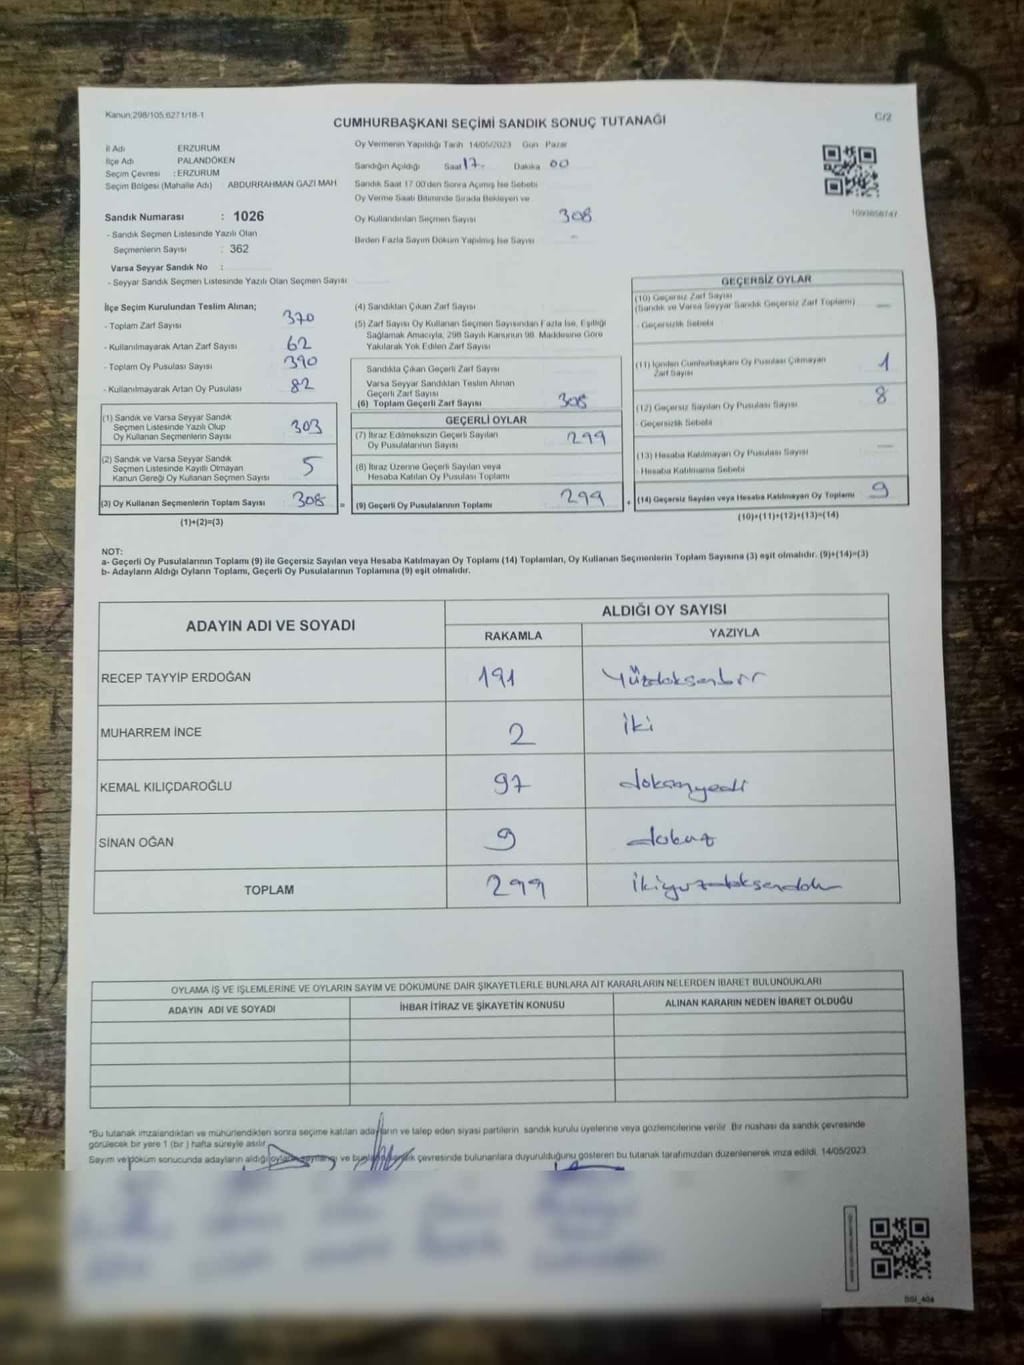 Kanun:298/105,6271/18-1
C/2
CUMHURBAŞKANI SEÇİMİ SANDIK SONUÇ TUTANAĞI
İl Adı ERZURUM
İlçe Adı PALANDÖKEN
Seçim Çevresi : ERZURUM
Seçim Bölgesi (Mahalle Adı) ABDURRAHMAN GAZİ MAH
Oy Vermenin Yapıldığı Tarih 14/05/2023 Gün Pazar
Sandığın Açıldığı Saat 17 Dakika 00
Sandık Saat 17:00'den Sonra Açılmış İse Sebebi
Oy Verme Saati Bitiminde Sırada Bekleyen ve
Oy Kullandırılan Seçmen Sayısı 308
Birden Fazla Sayım Döküm Yapılmış İse Sayısı -
1093858747
Sandık Numarası : 1026
- Sandık Seçmen Listesinde Yazılı Olan
Seçmenlerin Sayısı : 362
Varsa Seyyar Sandık No :
- Seyyar Sandık Seçmen Listesinde Yazılı Olan Seçmen Sayısı
İlçe Seçim Kurulundan Teslim Alınan;
- Toplam Zarf Sayısı 370
- Kullanılmayarak Artan Zarf Sayısı 62
- Toplam Oy Pusulası Sayısı 390
- Kullanılmayarak Artan Oy Pusulası 82
(1) Sandık ve Varsa Seyyar Sandık
Seçmen Listesinde Yazılı Olup
Oy Kullanan Seçmenlerin Sayısı 303
(2) Sandık ve Varsa Seyyar Sandık
Seçmen Listesinde Kayıtlı Olmayan
Kanun Gereği Oy Kullanan Seçmen Sayısı 5
(3) Oy Kullanan Seçmenlerin Toplam Sayısı 308 =
(1)+(2)=(3)
(4) Sandıktan Çıkan Zarf Sayısı
(5) Zarf Sayısı Oy Kullanan Seçmen Sayısından Fazla İse, Eşitliği
Sağlamak Amacıyla, 298 Sayılı Kanunun 98. Maddesine Göre
Yakılarak Yok Edilen Zarf Sayısı
Sandıkta Çıkan Geçerli Zarf Sayısı
Varsa Seyyar Sandıktan Teslim Alınan
Geçerli Zarf Sayısı
(6) Toplam Geçerli Zarf Sayısı 308
GEÇERLİ OYLAR
(7) İtiraz Edilmeksizin Geçerli Sayılan
Oy Pusulalarının Sayısı 299
(8) İtiraz Üzerine Geçerli Sayılan veya
Hesaba Katılan Oy Pusulası Toplamı
(9) Geçerli Oy Pusulalarının Toplamı 299 +
GEÇERSİZ OYLAR
(10) Geçersiz Zarf Sayısı
(Sandık ve Varsa Seyyar Sandık Geçersiz Zarf Toplamı) —
- Geçersizlik Sebebi
(11) İçinden Cumhurbaşkanı Oy Pusulası Çıkmayan
Zarf Sayısı 1
(12) Geçersiz Sayılan Oy Pusulası Sayısı 8
- Geçersizlik Sebebi
(13) Hesaba Katılmayan Oy Pusulası Sayısı —
- Hesaba Katılmama Sebebi
(14) Geçersiz Sayılan veya Hesaba Katılmayan Oy Toplamı 9
(10)+(11)+(12)+(13)=(14)
NOT:
a- Geçerli Oy Pusulalarının Toplamı (9) ile Geçersiz Sayılan veya Hesaba Katılmayan Oy Toplamı (14) Toplamları, Oy Kullanan Seçmenlerin Toplam Sayısına (3) eşit olmalıdır. (9)+(14)=(3)
b- Adayların Aldığı Oyların Toplamı, Geçerli Oy Pusulalarının Toplamına (9) eşit olmalıdır.
ADAYIN ADI VE SOYADI ALDIĞI OY SAYISI
RAKAMLA YAZIYLA
RECEP TAYYİP ERDOĞAN 191 Yüzdoksanbir
MUHARREM İNCE 2 iki
KEMAL KILIÇDAROĞLU 97 doksanyedi
SİNAN OĞAN 9 dokuz
TOPLAM 299 ikiyüzdoksandok
OYLAMA İŞ VE İŞLEMLERİNE VE OYLARIN SAYIM VE DÖKÜMÜNE DAİR ŞİKAYETLERLE BUNLARA AİT KARARLARIN NELERDEN İBARET BULUNDUKLARI
ADAYIN ADI VE SOYADI İHBAR İTİRAZ VE ŞİKAYETİN KONUSU ALINAN KARARIN NEDEN İBARET OLDUĞU
*Bu tutanak imzalandıktan ve mühürlendikten sonra seçime katılan adayların ve talep eden siyasi partilerin sandık kurulu üyelerine veya gözlemcilerine verilir. Bir nüshası da sandık çevresinde
görülecek bir yere 1 (bir) hafta süreyle asılır.
Sayım ve döküm sonucunda adayların aldığı ve çevresinde bulunanlara duyurulduğunu gösteren bu tutanak tarafımızdan düzenlenerek imza edildi. 14/05/2023